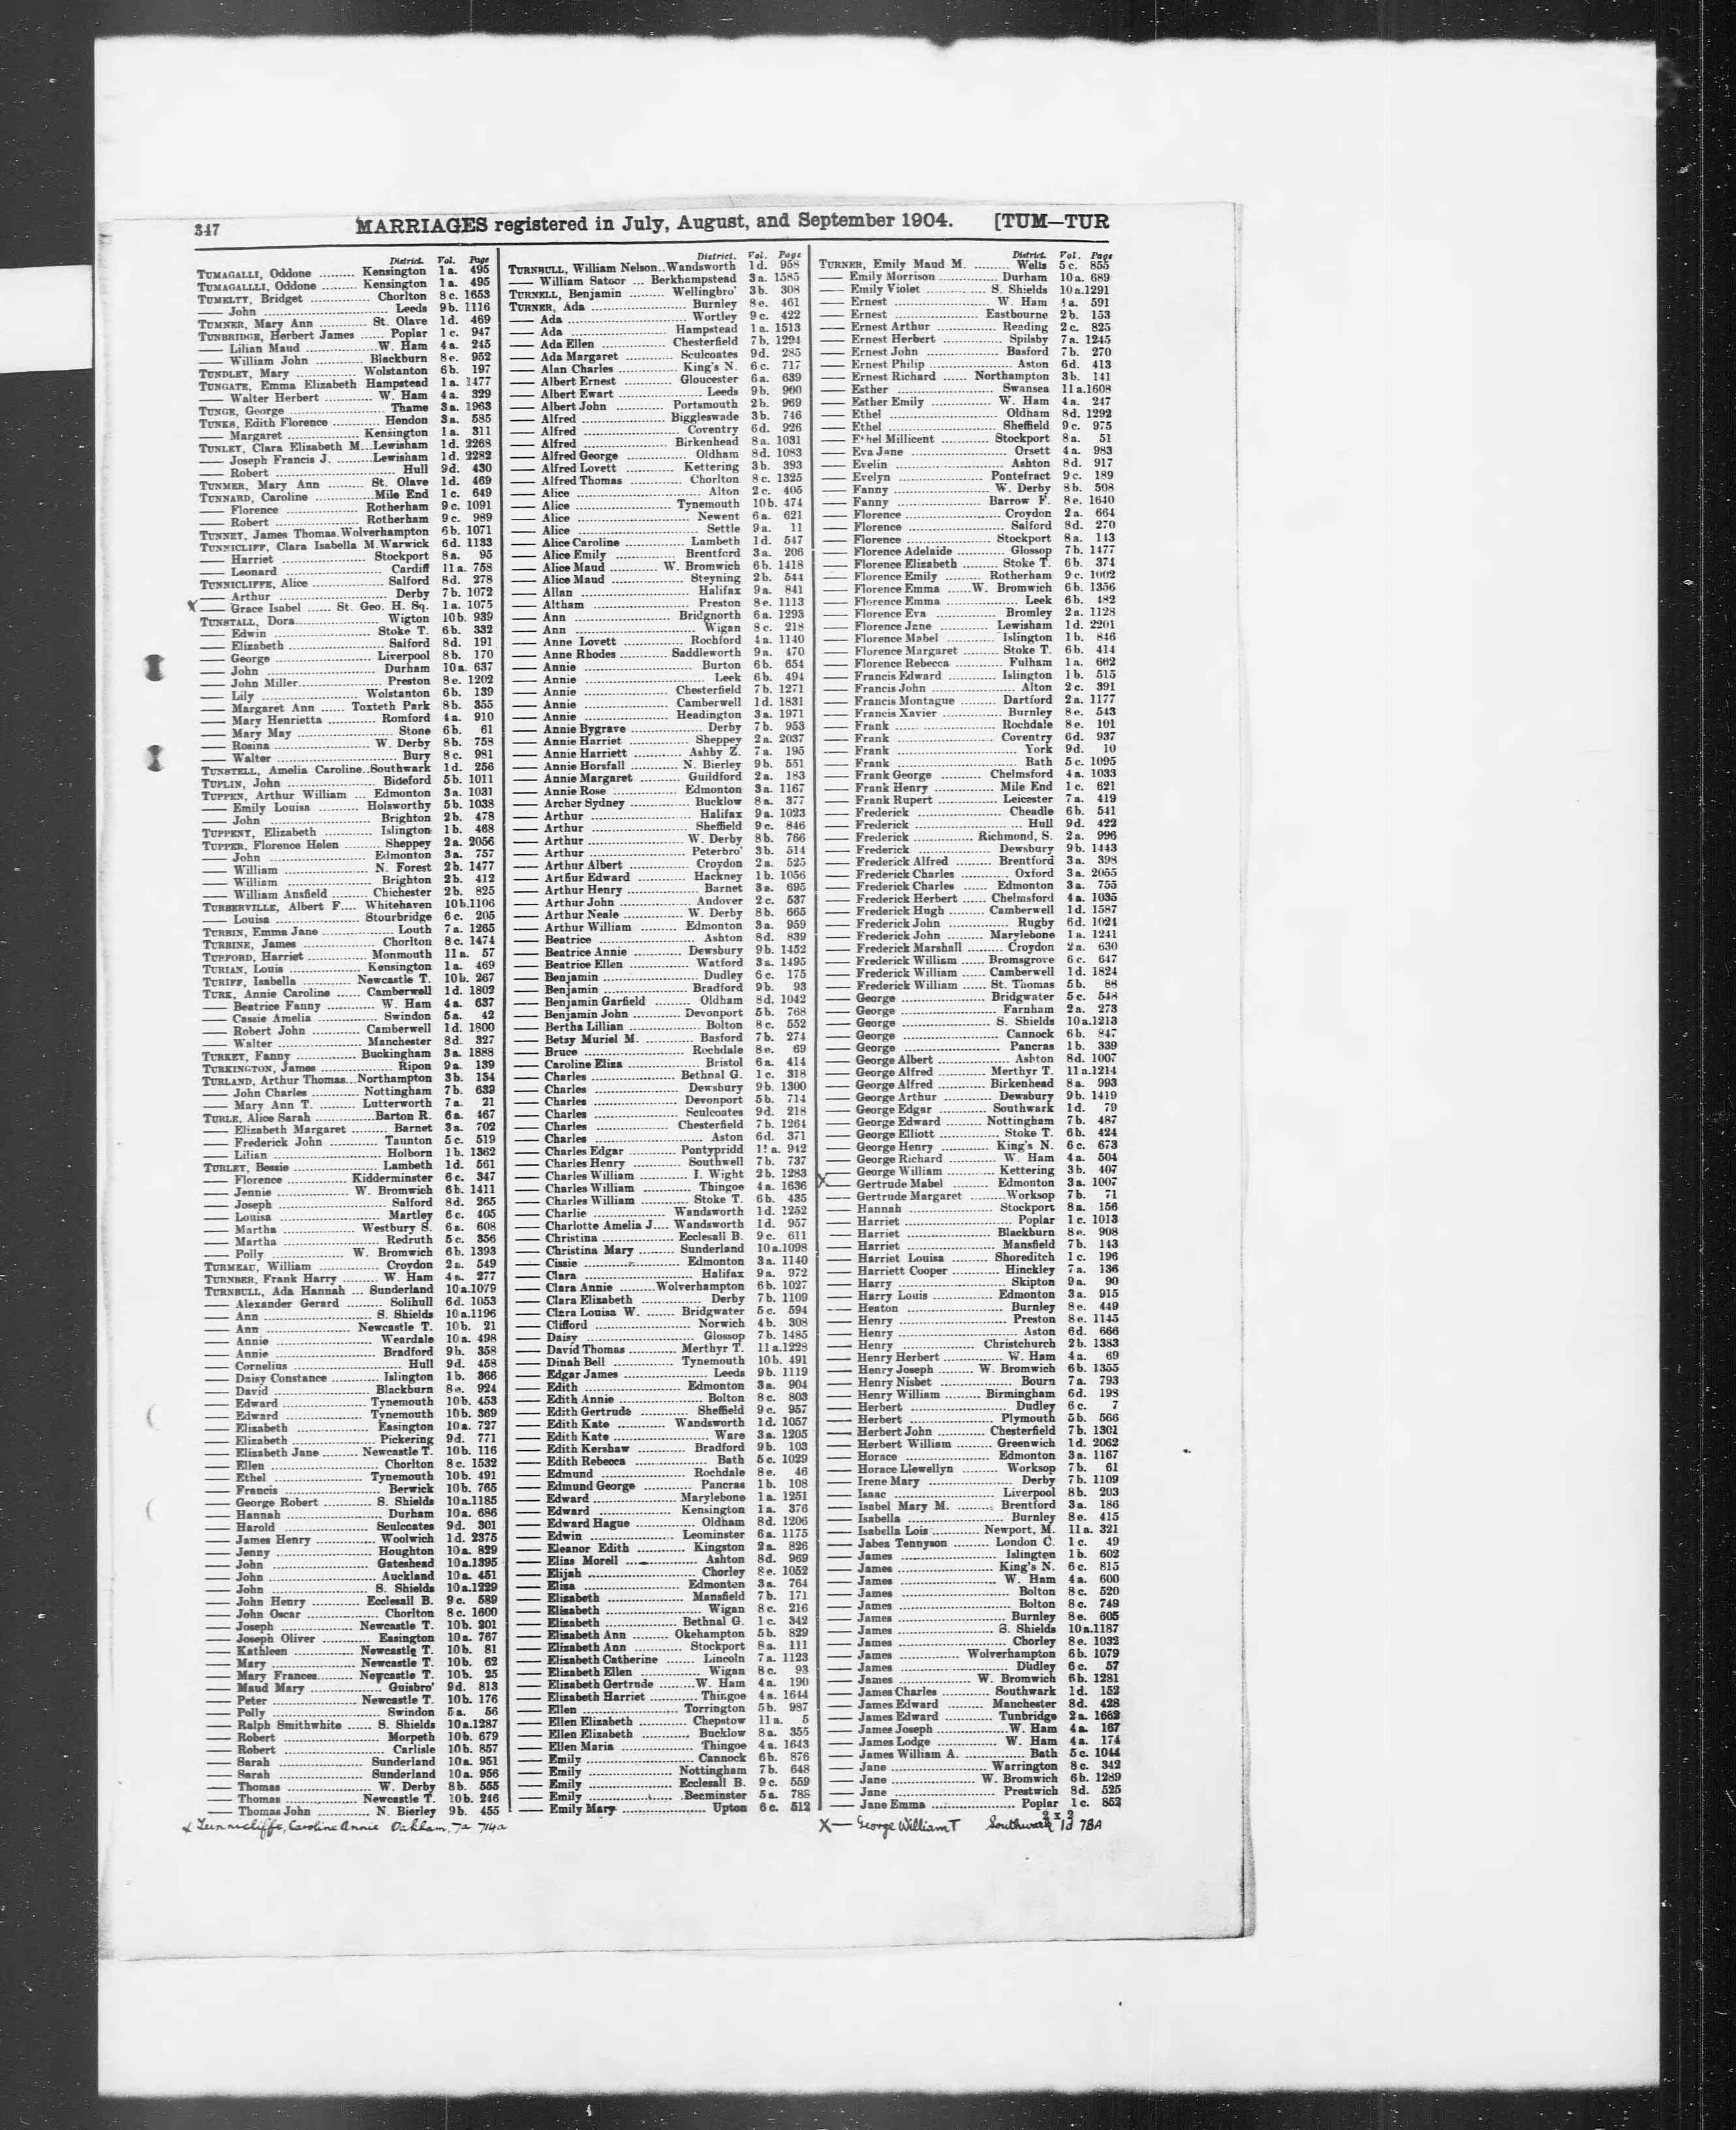 347 MARRIAGES registered in July, August, and September 1904. [TUM—TUR
District. Vol. Page
TUMAGALLI, Oddone ......... Kensington 1a. 495
TUMAGALLLI, Oddone ......... Kensington 1a. 495
TUMELTY, Bridget ............... Chorlton 8c. 1653
—— John .................................. Leeds 9b. 1116
TUMNER, Mary Ann ............ St. Olave 1d. 469
TUNBRIDGE, Herbert James ...... Poplar 1c. 947
—— Lilian Maud .................. W. Ham 4a. 245
—— William John ............... Blackburn 8e. 952
TUNDLEY, Mary .................. Wolstanton 6b. 197
TUNGATE, Emma Elizabeth Hampstead 1a. 1477
—— Walter Herbert ............ W. Ham 4a. 329
TUNGE, George ........................ Thame 3a. 1963
TUNKS, Edith Florence ............ Hendon 3a. 585
—— Margaret .................. Kensington 1a. 311
TUNLEY, Clara Elizabeth M...Lewisham 1d. 2268
—— Joseph Francis J. .........Lewisham 1d. 2282
—— Robert .............................. Hull 9d. 430
TUNMER, Mary Ann ......... St. Olave 1d. 469
TUNNARD, Caroline ...............Mile End 1c. 649
—— Florence .................. Rotherham 9c. 1091
—— Robert ..................... Rotherham 9c. 989
TUNNEY, James Thomas.Wolverhampton 6b. 1071
TUNNICLIFF, Clara Isabella M.Warwick 6d. 1133
—— Harriet ..................... Stockport 8a. 95
—— Leonard ........................ Cardiff 11a. 758
TUNNICLIFFE, Alice .................. Salford 8d. 278
—— Arthur ........................... Derby 7b. 1072
X —— Grace Isabel ...... St. Geo. H. Sq. 1a. 1075
TUNSTALL, Dora..................... Wigton 10b. 939
—— Edwin ........................ Stoke T. 6b. 332
—— Elizabeth ........................ Salford 8d. 191
—— George ........................ Liverpool 8b. 170
—— John ........................... Durham 10a. 637
—— John Miller.................. Preston 8e. 1202
—— Lily ........................ Wolstanton 6b. 139
—— Margaret Ann ...... Toxteth Park 8b. 355
—— Mary Henrietta ............ Romford 4a. 910
—— Mary May ........................ Stone 6b. 61
—— Rosina ........................ W. Derby 8b. 758
—— Walter ........................... Bury 8c. 981
TUNSTELL, Amelia Caroline..Southwark 1d. 256
TUPLIN, John ........................ Bideford 5b. 1011
TUPPEN, Arthur William ... Edmonton 3a. 1031
—— Emily Louisa .......... Holsworthy 5b. 1038
—— John ........................... Brighton 2b. 478
TUPPENY, Elizabeth ............ Islington 1b. 468
TUPPER, Florence Helen ......... Sheppey 2a. 2056
—— John ........................ Edmonton 3a. 757
—— William ..................... N. Forest 2b. 1477
—— William ..................... Brighton 2b. 412
—— William Ansfield ......... Chichester 2b. 825
TURBERVILLE, Albert F.... Whitehaven 10b.1106
—— Louisa ..................... Stourbridge 6c. 205
TURBIN, Emma Jane .................. Louth 7a. 1265
TURBINE, James .................. Chorlton 8c. 1474
TURFORD, Harriet ............... Monmouth 11a. 57
TURIAN, Louis .................. Kensington 1a. 469
TURIFF, Isabella ............ Newcastle T. 10b. 267
TURK, Annie Caroline ...... Camberwell 1d. 1802
—— Beatrice Fanny ............ W. Ham 4a. 637
—— Cassie Amelia ............... Swindon 5a. 42
—— Robert John ............ Camberwell 1d. 1800
—— Walter ..................... Manchester 8d. 327
TURKEY, Fanny ............... Buckingham 3a. 1888
TURKINGTON, James .................. Ripon 9a. 139
TURLAND, Arthur Thomas...Northampton 3b. 134
—— John Charles ............ Nottingham 7b. 639
—— Mary Ann T. ......... Lutterworth 7a. 21
TURLE, Alice Sarah ...............Barton R. 6a. 467
—— Elizabeth Margaret ......... Barnet 3a. 702
—— Frederick John ............ Taunton 5c. 519
—— Lilian ........................ Holborn 1b. 1362
TURLEY, Bessie ..................... Lambeth 1d. 561
—— Florence ............... Kidderminster 6c. 347
—— Jennie .................. W. Bromwich 6b. 1411
—— Joseph ........................ Salford 8d. 265
—— Louisa ........................ Martley 6c. 405
—— Martha ............... Westbury S. 6a. 608
—— Martha ........................ Redruth 5c. 356
—— Polly .................. W. Bromwich 6b. 1393
TURMEAU, William ............... Croydon 2a. 549
TURNBER, Frank Harry ......... W. Ham 4a. 277
TURNBULL, Ada Hannah ... Sunderland 10a.1079
—— Alexander Gerard ......... Solihull 6d. 1053
—— Ann ........................ S. Shields 10a.1196
—— Ann .................. Newcastle T. 10b. 21
—— Annie ..................... Weardale 10a. 498
—— Annie ........................ Bradford 9b. 358
—— Cornelius ........................ Hull 9d. 458
—— Daisy Constance ............ Islington 1b. 366
—— David ........................ Blackburn 8e. 924
—— Edward ..................... Tynemouth 10b. 453
—— Edward ..................... Tynemouth 10b. 369
—— Elizabeth .................. Easington 10a. 727
—— Elizabeth ..................... Pickering 9d. 771
—— Elizabeth Jane ...... Newcastle T. 10b. 116
—— Ellen ........................ Chorlton 8c. 1532
—— Ethel ..................... Tynemouth 10b. 491
—— Francis ........................ Berwick 10b. 765
—— George Robert ......... S. Shields 10a.1185
—— Hannah ........................ Durham 10a. 686
—— Harold .................. Sculcoates 9d. 301
—— James Henry ............... Woolwich 1d. 2375
—— Jenny ..................... Houghton 10a. 829
—— John ..................... Gateshead 10a.1395
—— John ........................ Auckland 10a. 451
—— John ........................ S. Shields 10a.1229
—— John Henry ............ Ecclesall B. 9c. 589
—— John Oscar .................. Chorlton 8c. 1600
—— Joseph .................. Newcastle T. 10b. 201
—— Joseph Oliver ............ Easington 10a. 767
—— Kathleen ............... Newcastle T. 10b. 81
—— Mary .................. Newcastle T. 10b. 62
—— Mary Frances......... Newcastle T. 10b. 25
—— Maud Mary .................. Guisbro' 9d. 813
—— Peter .................. Newcastle T. 10b. 176
—— Polly ........................ Swindon 5a. 56
—— Ralph Smithwhite ...... S. Shields 10a.1287
—— Robert ..................... Morpeth 10b. 679
—— Robert ........................ Carlisle 10b. 857
—— Sarah ..................... Sunderland 10a. 951
—— Sarah ..................... Sunderland 10a. 956
—— Thomas .................. W. Derby 8b. 555
—— Thomas ............... Newcastle T. 10b. 246
—— Thomas John ............ N. Bierley 9b. 455
x Tunnicliffe, Caroline Annie Oakham. 7a 714a
District. Vol. Page
TURNBULL, William Nelson..Wandsworth 1d. 958
—— William Satoor ... Berkhampstead 3a. 1585
TURNELL, Benjamin ......... Wellingbro' 3b. 308
TURNER, Ada ........................ Burnley 8e. 461
—— Ada ........................... Wortley 9c. 422
—— Ada ........................ Hampstead 1a. 1513
—— Ada Ellen ............... Chesterfield 7b. 1294
—— Ada Margaret ............ Sculcoates 9d. 285
—— Alan Charles ............... King's N. 6c. 717
—— Albert Ernest ............ Gloucester 6a. 639
—— Albert Ewart .................. Leeds 9b. 900
—— Albert John ............ Portsmouth 2b. 969
—— Alfred ..................... Biggleswade 3b. 746
—— Alfred ........................ Coventry 6d. 926
—— Alfred ..................... Birkenhead 8a. 1031
—— Alfred George ............... Oldham 8d. 1083
—— Alfred Lovett ............ Kettering 3b. 393
—— Alfred Thomas ............ Chorlton 8c. 1325
—— Alice ........................... Alton 2c. 405
—— Alice ..................... Tynemouth 10b. 474
—— Alice ........................ Newent 6a. 621
—— Alice ........................... Settle 9a. 11
—— Alice Caroline ............... Lambeth 1d. 547
—— Alice Emily ............... Brentford 3a. 206
—— Alice Maud ......... W. Bromwich 6b. 1418
—— Alice Maud ............... Steyning 2b. 544
—— Allan ........................ Halifax 9a. 841
—— Altham ........................ Preston 8e. 1113
—— Ann ........................ Bridgnorth 6a. 1293
—— Ann ........................... Wigan 8c. 218
—— Anne Lovett ............... Rochford 4a. 1140
—— Anne Rhodes ......... Saddleworth 9a. 470
—— Annie ........................ Burton 6b. 654
—— Annie ........................... Leek 6b. 494
—— Annie .................. Chesterfield 7b. 1271
—— Annie ..................... Camberwell 1d. 1831
—— Annie ..................... Headington 3a. 1971
—— Annie Bygrave .................. Derby 7b. 953
—— Annie Harriet ............... Sheppey 2a. 2037
—— Annie Harriett ......... Ashby Z. 7a. 195
—— Annie Horsfall ......... N. Bierley 9b. 551
—— Annie Margaret ......... Guildford 2a. 183
—— Annie Rose ............... Edmonton 3a. 1167
—— Archer Sydney ............ Bucklow 8a. 377
—— Arthur ........................ Halifax 9a. 1023
—— Arthur ........................ Sheffield 9c. 846
—— Arthur ........................ W. Derby 8b. 766
—— Arthur ..................... Peterbro' 3b. 514
—— Arthur Albert ............... Croydon 2a. 525
—— Arthur Edward ............ Hackney 1b. 1056
—— Arthur Henry ............... Barnet 3a. 695
—— Arthur John ............... Andover 2c. 537
—— Arthur Neale ............ W. Derby 8b. 665
—— Arthur William ......... Edmonton 3a. 959
—— Beatrice ........................ Ashton 8d. 839
—— Beatrice Annie ............ Dewsbury 9b. 1452
—— Beatrice Ellen ............ Watford 3a. 1495
—— Benjamin ..................... Dudley 6c. 175
—— Benjamin ..................... Bradford 9b. 93
—— Benjamin Garfield ......... Oldham 8d. 1042
—— Benjamin John ......... Devonport 5b. 768
—— Bertha Lillian ............... Bolton 8c. 552
—— Betsy Muriel M. ......... Basford 7b. 274
—— Bruce ........................ Rochdale 8e. 69
—— Caroline Eliza ............... Bristol 6a. 414
—— Charles ..................... Bethnal G. 1c. 318
—— Charles ..................... Dewsbury 9b. 1300
—— Charles ..................... Devonport 5b. 714
—— Charles ..................... Sculcoates 9d. 218
—— Charles .................. Chesterfield 7b. 1264
—— Charles ........................ Aston 6d. 371
—— Charles Edgar ......... Pontypridd 11a. 942
—— Charles Henry ......... Southwell 7b. 737
—— Charles William ......... I. Wight 2b. 1283
—— Charles William ............ Thingoe 4a. 1636
—— Charles William ......... Stoke T. 6b. 435
—— Charlie .................. Wandsworth 1d. 1252
—— Charlotte Amelia J.... Wandsworth 1d. 957
—— Christina ............... Ecclesall B. 9c. 611
—— Christina Mary ......... Sunderland 10a.1098
—— Cissie ..................... Edmonton 3a. 1140
—— Clara ........................ Halifax 9a. 972
—— Clara Annie .........Wolverhampton 6b. 1027
—— Clara Elizabeth ............... Derby 7b. 1109
—— Clara Louisa W. ....... Bridgwater 5c. 594
—— Clifford ........................ Norwich 4b. 308
—— Daisy ........................ Glossop 7b. 1485
—— David Thomas ......... Merthyr T. 11a.1228
—— Dinah Bell ............... Tynemouth 10b. 491
—— Edgar James .................. Leeds 9b. 1119
—— Edith ..................... Edmonton 3a. 904
—— Edith Annie .................. Bolton 8c. 803
—— Edith Gertrude ............ Sheffield 9c. 957
—— Edith Kate ............ Wandsworth 1d. 1057
—— Edith Kate ..................... Ware 3a. 1205
—— Edith Kershaw ............ Bradford 9b. 103
—— Edith Rebecca .................. Bath 5c. 1029
—— Edmund ..................... Rochdale 8e. 46
—— Edmund George ............ Pancras 1b. 108
—— Edward .................. Marylebone 1a. 1251
—— Edward .................. Kensington 1a. 376
—— Edward Hague ............... Oldham 8d. 1206
—— Edwin ..................... Leominster 6a. 1175
—— Eleanor Edith ............ Kingston 2a. 826
—— Elias Morell ............... Ashton 8d. 969
—— Elijah ........................ Chorley 8e. 1052
—— Eliza ..................... Edmonton 3a. 764
—— Elizabeth ..................... Mansfield 7b. 171
—— Elizabeth ........................ Wigan 8c. 216
—— Elizabeth ............... Bethnal G. 1c. 342
—— Elizabeth Ann ......... Okehampton 5b. 829
—— Elizabeth Ann ............ Stockport 8a. 111
—— Elizabeth Catherine ...... Lincoln 7a. 1123
—— Elizabeth Ellen ............... Wigan 8c. 93
—— Elizabeth Gertrude .........W. Ham 4a. 190
—— Elizabeth Harriet ............ Thingoe 4a. 1644
—— Ellen ..................... Torrington 5b. 987
—— Ellen Elizabeth ............ Chepstow 11a. 5
—— Ellen Elizabeth ............ Bucklow 8a. 355
—— Ellen Maria ............... Thingoe 4a. 1643
—— Emily ........................ Cannock 6b. 876
—— Emily ..................... Nottingham 7b. 648
—— Emily .................. Ecclesall B. 9c. 559
—— Emily ..................... Beeminster 5a. 788
—— Emily Mary .................. Upton 6c. 512
District. Vol. Page
TURNER, Emily Maud M. ......... Wells 5c. 855
—— Emily Morrison ............... Durham 10a. 689
—— Emily Violet ............... S. Shields 10a.1291
—— Ernest ........................ W. Ham 4a. 591
—— Ernest ..................... Eastbourne 2b. 153
—— Ernest Arthur ............... Reading 2c. 825
—— Ernest Herbert ............... Spilsby 7a. 1245
—— Ernest John .................. Basford 7b. 270
—— Ernest Philip .................. Aston 6d. 413
—— Ernest Richard ...... Northampton 3b. 141
—— Esther ........................ Swansea 11a.1608
—— Esther Emily ............... W. Ham 4a. 247
—— Ethel ........................... Oldham 8d. 1292
—— Ethel ........................ Sheffield 9c. 975
—— Ethel Millicent ............ Stockport 8a. 51
—— Eva Jane ........................ Orsett 4a. 983
—— Evelin ........................ Ashton 8d. 917
—— Evelyn ..................... Pontefract 9c. 189
—— Fanny ........................ W. Derby 8b. 508
—— Fanny ..................... Barrow F. 8e. 1640
—— Florence ........................ Croydon 2a. 664
—— Florence ........................ Salford 8d. 270
—— Florence ..................... Stockport 8a. 143
—— Florence Adelaide ............ Glossop 7b. 1477
—— Florence Elizabeth ......... Stoke T. 6b. 374
—— Florence Emily ......... Rotherham 9c. 1002
—— Florence Emma ......W. Bromwich 6b. 1356
—— Florence Emma .................. Leek 6b. 482
—— Florence Eva ............... Bromley 2a. 1128
—— Florence Jane ............ Lewisham 1d. 2201
—— Florence Mabel ............ Islington 1b. 846
—— Florence Margaret ......... Stoke T. 6b. 414
—— Florence Rebecca ............ Fulham 1a. 662
—— Francis Edward ............ Islington 1b. 515
—— Francis John .................. Alton 2c. 391
—— Francis Montague ......... Dartford 2a. 1177
—— Francis Xavier ............... Burnley 8e. 543
—— Frank ........................ Rochdale 8e. 101
—— Frank ........................ Coventry 6d. 937
—— Frank ........................... York 9d. 10
—— Frank ........................... Bath 5c. 1095
—— Frank George ......... Chelmsford 4a. 1033
—— Frank Henry ............... Mile End 1c. 621
—— Frank Rupert ............ Leicester 7a. 419
—— Frederick ..................... Cheadle 6b. 541
—— Frederick ........................ Hull 9d. 422
—— Frederick ............... Richmond, S. 2a. 996
—— Frederick ..................... Dewsbury 9b. 1443
—— Frederick Alfred ......... Brentford 3a. 398
—— Frederick Charles ............ Oxford 3a. 2055
—— Frederick Charles ...... Edmonton 3a. 755
—— Frederick Herbert ...... Chelmsford 4a. 1035
—— Frederick Hugh ......... Camberwell 1d. 1587
—— Frederick John ............... Rugby 6d. 1024
—— Frederick John ......... Marylebone 1a. 1241
—— Frederick Marshall ......... Croydon 2a. 630
—— Frederick William ...... Bromsgrove 6c. 647
—— Frederick William ...... Camberwell 1d. 1824
—— Frederick William ...... St. Thomas 5b. 88
—— George ..................... Bridgwater 5c. 548
—— George ........................ Farnham 2a. 273
—— George ..................... S. Shields 10a.1213
—— George ........................ Cannock 6b. 847
—— George ........................ Pancras 1b. 339
—— George Albert ............... Ashton 8d. 1007
—— George Alfred ......... Merthyr T. 11a.1214
—— George Alfred ......... Birkenhead 8a. 993
—— George Arthur ......... Dewsbury 9b. 1419
—— George Edgar ............ Southwark 1d. 79
—— George Edward ......... Nottingham 7b. 487
—— George Elliott ............... Stoke T. 6b. 424
—— George Henry ............ King's N. 6c. 673
—— George Richard ............ W. Ham 4a. 504
—— George William ............ Kettering 3b. 407
X —— Gertrude Mabel ......... Edmonton 3a. 1007
—— Gertrude Margaret .........Worksop 7b. 71
—— Hannah ..................... Stockport 8a. 156
—— Harriet ........................ Poplar 1c. 1013
—— Harriet ..................... Blackburn 8e. 908
—— Harriet ..................... Mansfield 7b. 143
—— Harriet Louisa ......... Shoreditch 1c. 196
—— Harriett Cooper ............ Hinckley 7a. 136
—— Harry ........................ Skipton 9a. 90
—— Harry Louis ............... Edmonton 3a. 915
—— Heaton ........................ Burnley 8e. 449
—— Henry ........................ Preston 8e. 1145
—— Henry ........................... Aston 6d. 666
—— Henry .................. Christchurch 2b. 1383
—— Henry Herbert ............... W. Ham 4a. 69
—— Henry Joseph ......... W. Bromwich 6b. 1355
—— Henry Nisbet .................. Bourn 7a. 793
—— Henry William ......... Birmingham 6d. 198
—— Herbert ........................ Dudley 6c. 7
—— Herbert ..................... Plymouth 5b. 566
—— Herbert John ............ Chesterfield 7b. 1301
—— Herbert William ......... Greenwich 1d. 2062
—— Horace ..................... Edmonton 3a. 1167
—— Horace Llewellyn ......... Worksop 7b. 61
—— Irene Mary ..................... Derby 7b. 1109
—— Isaac ........................ Liverpool 8b. 203
—— Isabel Mary M. ......... Brentford 3a. 186
—— Isabella ........................ Burnley 8e. 415
—— Isabella Lois ............ Newport, M. 11a. 321
—— Jabez Tennyson ......... London C. 1c. 49
—— James ........................ Islington 1b. 602
—— James ........................ King's N. 6c. 815
—— James ........................ W. Ham 4a. 600
—— James ........................... Bolton 8c. 520
—— James ........................... Bolton 8c. 749
—— James ........................ Burnley 8e. 605
—— James ..................... S. Shields 10a.1187
—— James ........................ Chorley 8e. 1032
—— James ............... Wolverhampton 6b. 1079
—— James ........................... Dudley 6c. 57
—— James .................. W. Bromwich 6b. 1281
—— James Charles ............ Southwark 1d. 152
—— James Edward ......... Manchester 8d. 428
—— James Edward ............ Tunbridge 2a. 1662
—— James Joseph ...............W. Ham 4a. 167
—— James Lodge ............... W. Ham 4a. 174
—— James William A. ............... Bath 5c. 1044
—— Jane ..................... Warrington 8c. 342
—— Jane .................. W. Bromwich 6b. 1289
—— Jane ........................ Prestwich 8d. 525
—— Jane Emma ..................... Poplar 1c. 852
X— George William T Southwark 1d 78A